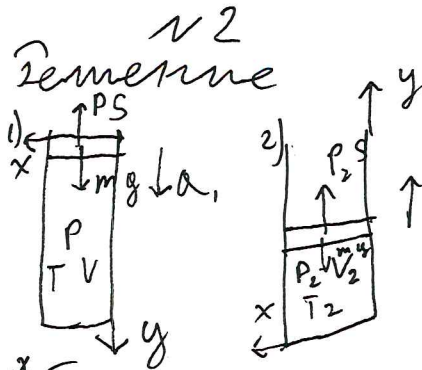 N2
Решение
1) PS
x
mg a₁
P
T V
y
2) y
P₂S
mg
P₂ V₂
T₂
x